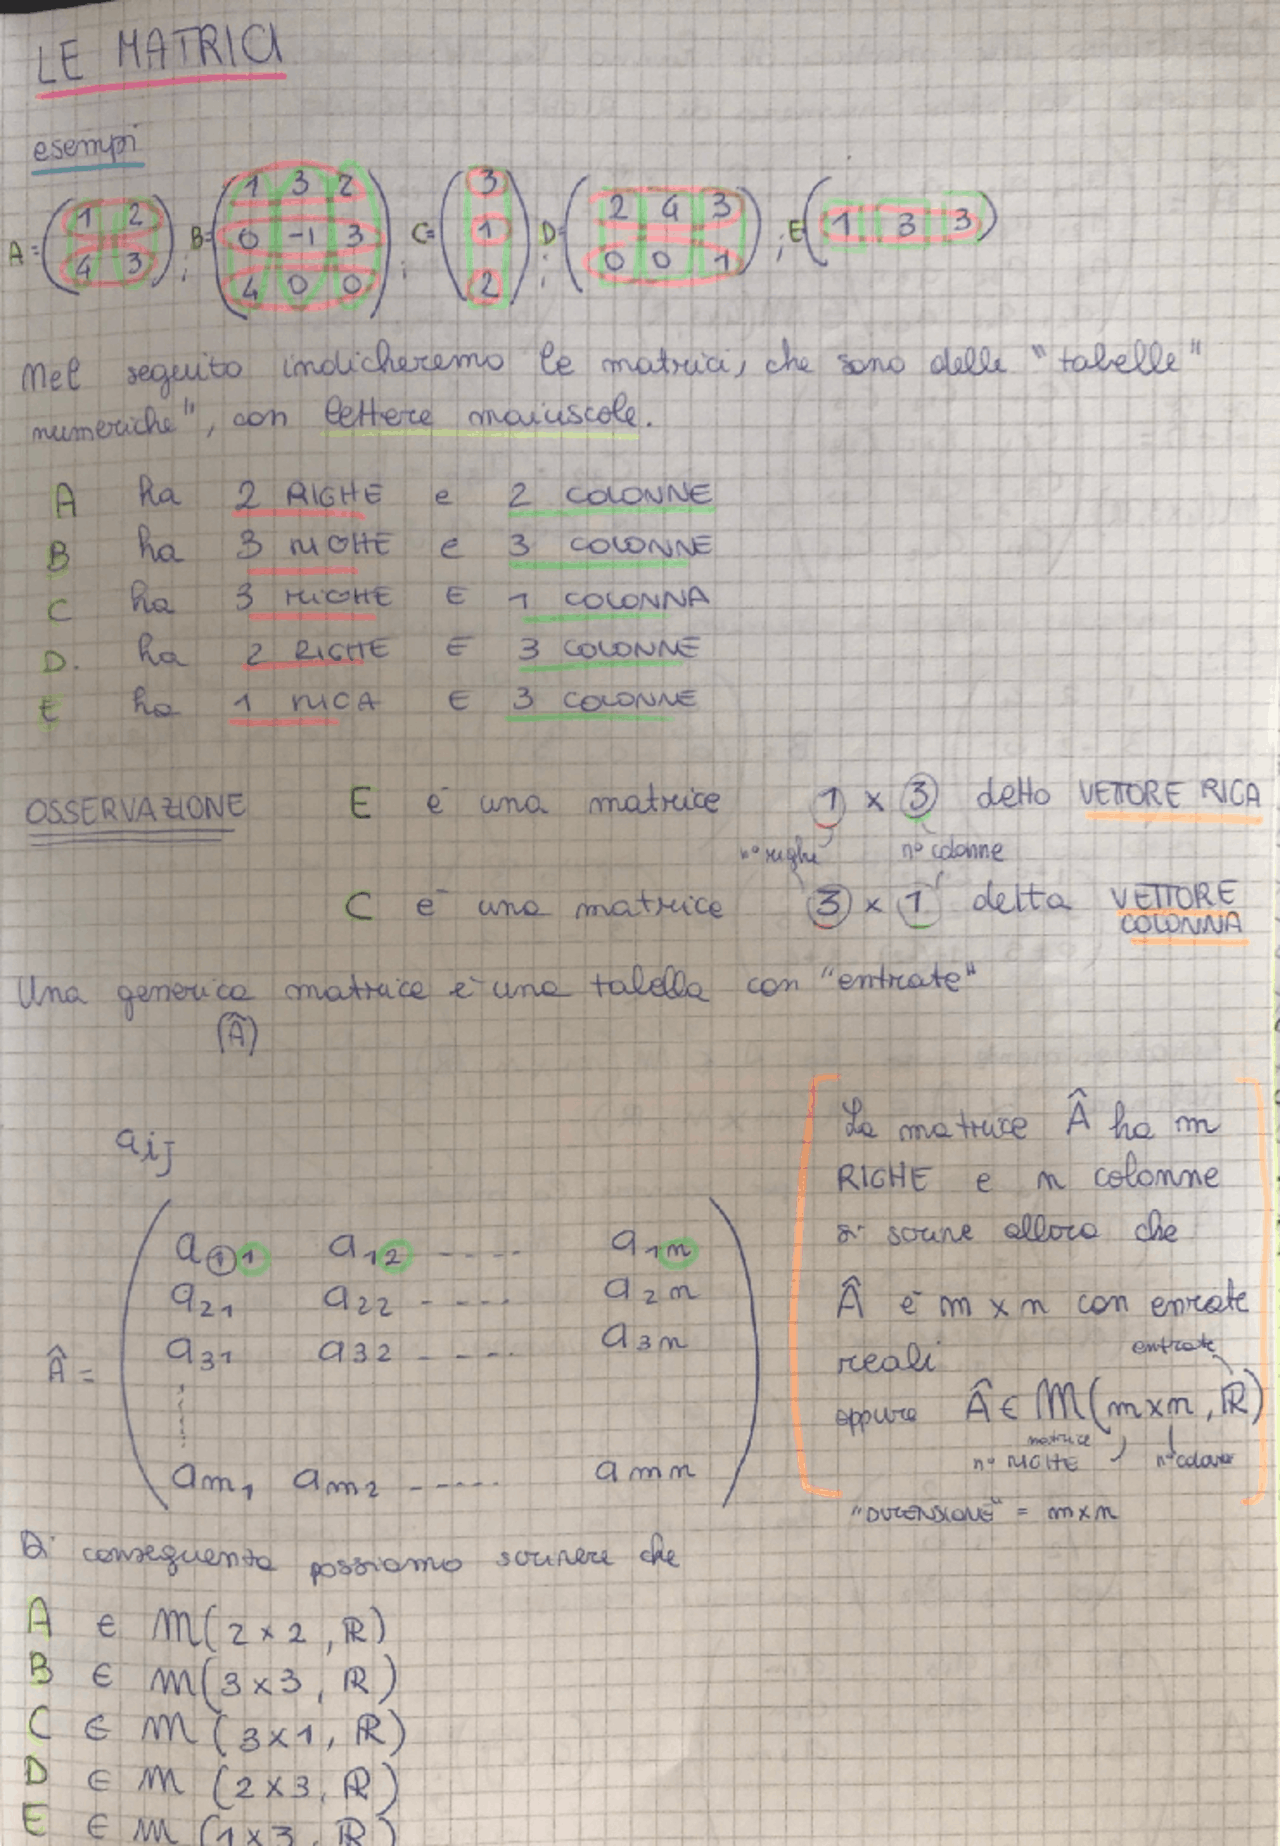 LE MATRICI
esempi
A = (1 2; 4 3) ; B = (1 3 2; 0 -1 3; 4 0 0) ; C = (3; 1; 2) ; D = (2 4 3; 0 0 1) ; E (1 3 3)
Nel seguito indicheremo le matrici, che sono delle "tabelle"
numeriche", con lettere maiuscole.
A ha 2 RIGHE e 2 COLONNE
B ha 3 RIGHE e 3 COLONNE
C ha 3 RIGHE E 1 COLONNA
D. ha 2 RIGHE E 3 COLONNE
E ha 1 RIGA E 3 COLONNE
OSSERVAZIONE E è una matrice 1 x 3 detto VETTORE RIGA
n° righe n° colonne
C è una matrice 3 x 1 detta VETTORE
COLONNA
Una generica matrice è una tabella con "entrate"
(Â)
aij
a11 a12 ----- a1n
a21 a22 ----- a2n
a31 a32 ----- a3n
 =
am1 am2 ----- amn
La matrice  ha m
RIGHE e n colonne
si scrive allora che
 è m x n con enrate
reali
entrate
oppure  ∈ M(m x n, ℝ)
matrice
n° RIGHE n° colonne
"DIMENSIONE" = m x n
Di conseguenza possiamo scrivere che
A ∈ M(2 x 2, ℝ)
B ∈ M(3 x 3, ℝ)
C ∈ M (3 x 1, ℝ)
D ∈ M (2 x 3, ℝ)
E ∈ M (1 x 3, ℝ)